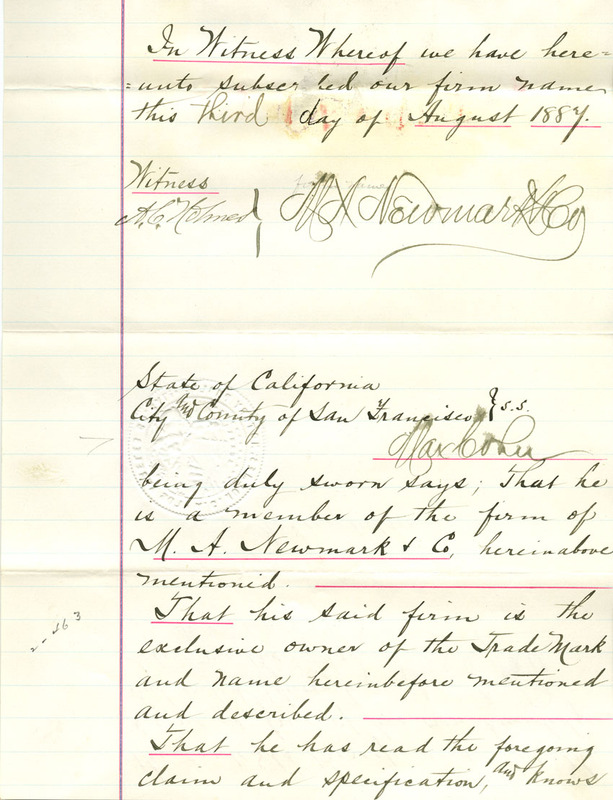 In Witness Whereof we have here=
=unto subscribed our firm name
this third day of August 1887.
Witness
A. C. Holmes } M A Newmark & Co
State of California
City and County of San Francisco } s.s.
Max Cohn
being duly sworn says; That he
is a member of the firm of
M. A. Newmark & Co, hereinabove
mentioned.
That his said firm is the
exclusive owner of the Trade Mark
and name hereinbefore mentioned
and described.
2-563
That he has read the foregoing
claim and specification, and knows